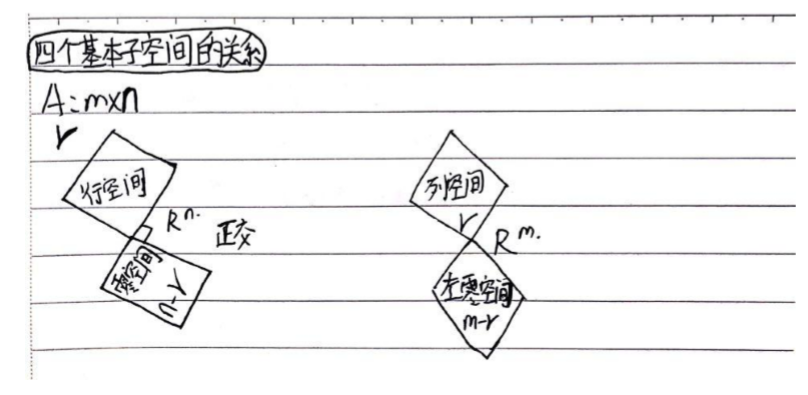 四个基本子空间的关系
A:m×n
r
行空间
Rⁿ.
正交
零空间
n-r
列空间
r
Rᵐ.
左零空间
m-r